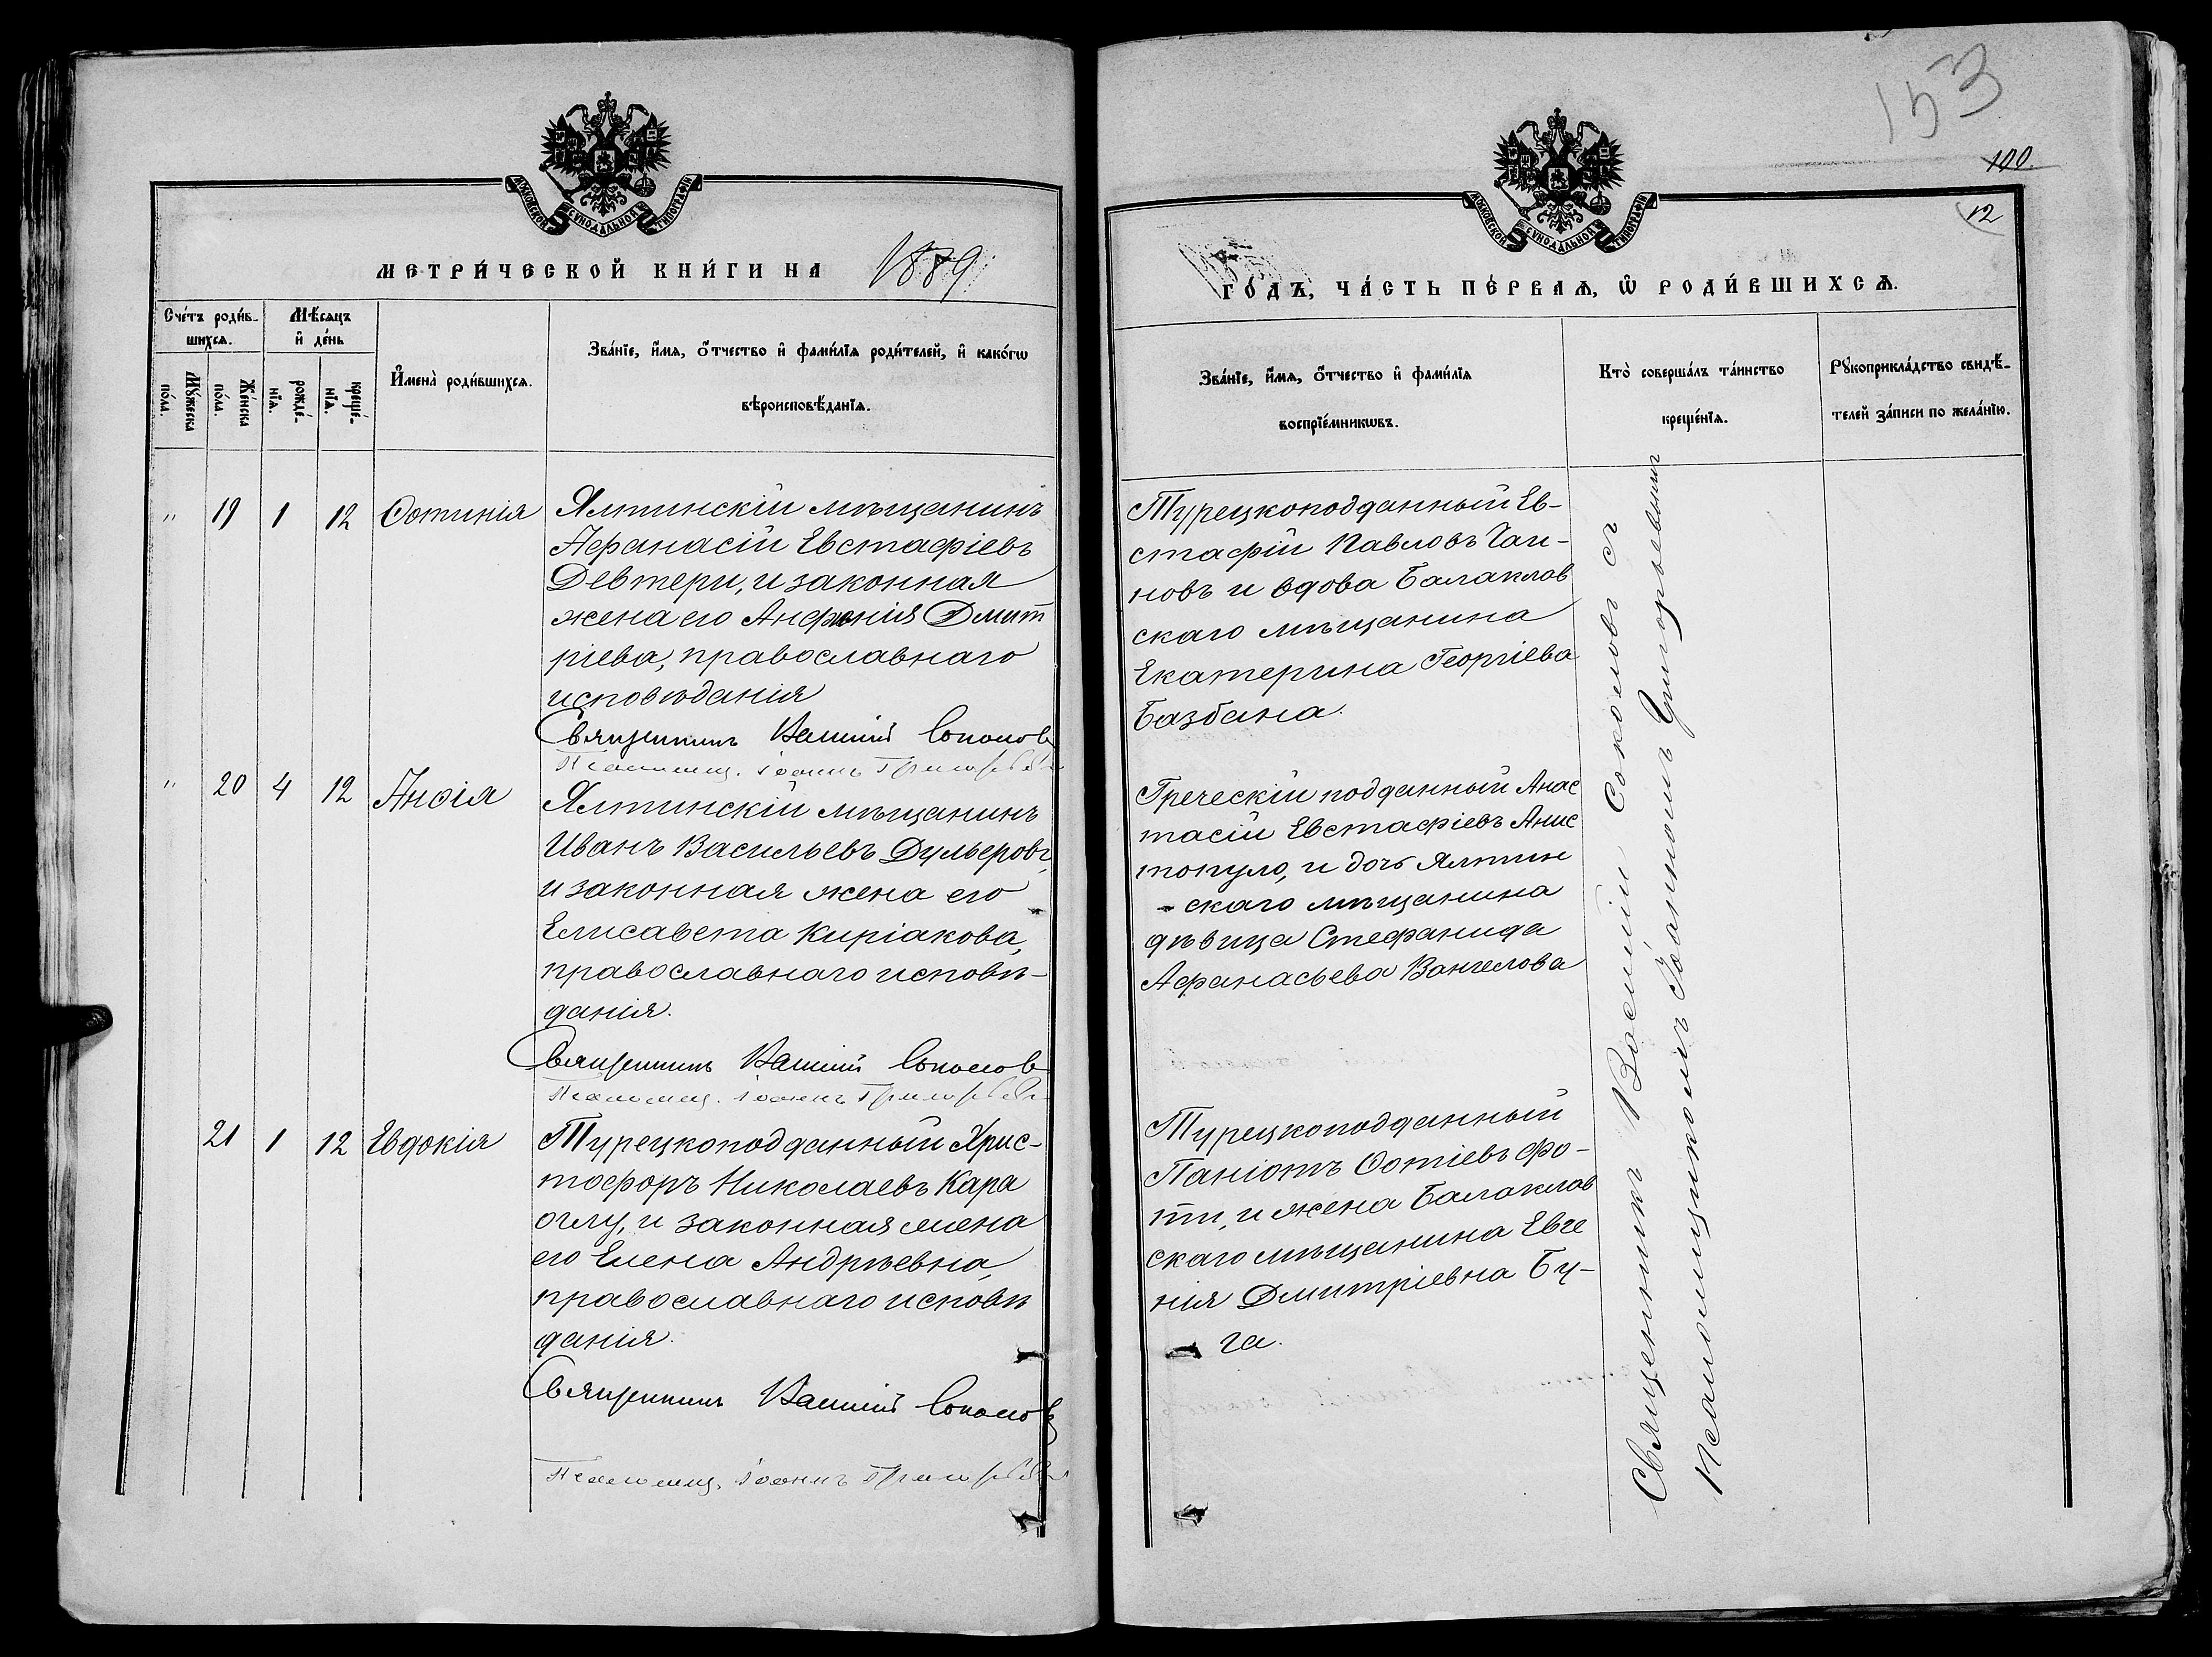 МОСКОВСКОЙ СѴНОДАЛЬНОЙ ТИПОГРАФІИ
МЕТРИ́ЧЕСКОЙ КНИ́ГИ НА 1889
Сче́тъ роди́в-
шихсѧ.
Мꙋ́жеска
по́ла.
Же́нска
по́ла.
Мѣ́сяцъ
и҆ де́нь
рожде́-
нїѧ.
креще́-
нїѧ.
И҆мена̀ роди́вшихсѧ.
Зва́нїе, и҆́мѧ, ѻ҆́тчество и҆ фами́лїѧ роди́телей, и҆ како́гѡ
вѣроисповѣ́данїѧ.
" 19 1 12 Ѳотинія
Ялтинскій мѣщанинъ
Аѳанасій Евстафіевъ
Девтери, и законная
жена его Анфонія Дмит
ріева, православнаго
исповѣданія
Священникъ Василій Соколовъ
Псаломщ. Іоаннъ Григорьевъ
" 20 4 12 Анѳія
Ялтинскій мѣщанинъ
Иванъ Васильевъ Дульеровъ,
и законная жена его
Елисавета Киріакова,
православнаго исповѣ-
данія.
Священникъ Василій Соколовъ
Псаломщ. Іоаннъ Григорьевъ
21 1 12 Евдокія
Турецкоподданный Хрис-
тофоръ Николаевъ Кара
оглу, и законная жена
его Елена Андрѣевна,
православнаго исповѣ
данія.
Священникъ Василій Соколовъ
Псаломщ. Іоаннъ Григорьевъ
153
100
12
МОСКОВСКОЙ СѴНОДАЛЬНОЙ ТИПОГРАФІИ
ГО́ДЪ, ЧА́СТЬ ПЕ́РВАѦ, Ѿ РОДИ́ВШИХСѦ.
Зва́нїе, и҆́мѧ, ѻ҆́тчество и҆ фами́лїѧ
воспрїе́мникѡвъ.
Кто̀ соверша́лъ та́инство
креще́нїѧ.
Рꙋкоприкла́дство свидѣ́-
телей за́писи по жела́нїю.
Турецкоподданный Ев-
стафій Павловъ Чаи-
новъ и вдова Балаклав
скаго мѣщанина
Екатерина Георгіева
Базбана.
Греческій подданный Анас
тасій Евстафіевъ Анис
топуло, и дочь Ялтин
скаго мѣщанина
дѣвица Стефанида
Афанасьева Вангелова
Турецкоподданный
Паніотъ Ѳотіевъ Фо-
ти, и жена Балаклав
скаго мѣщанина Евге
нія Дмитріевна Бу-
га.
Священникъ Василій Соколовъ съ
Псаломщикомъ Іоанномъ Григорьевымъ